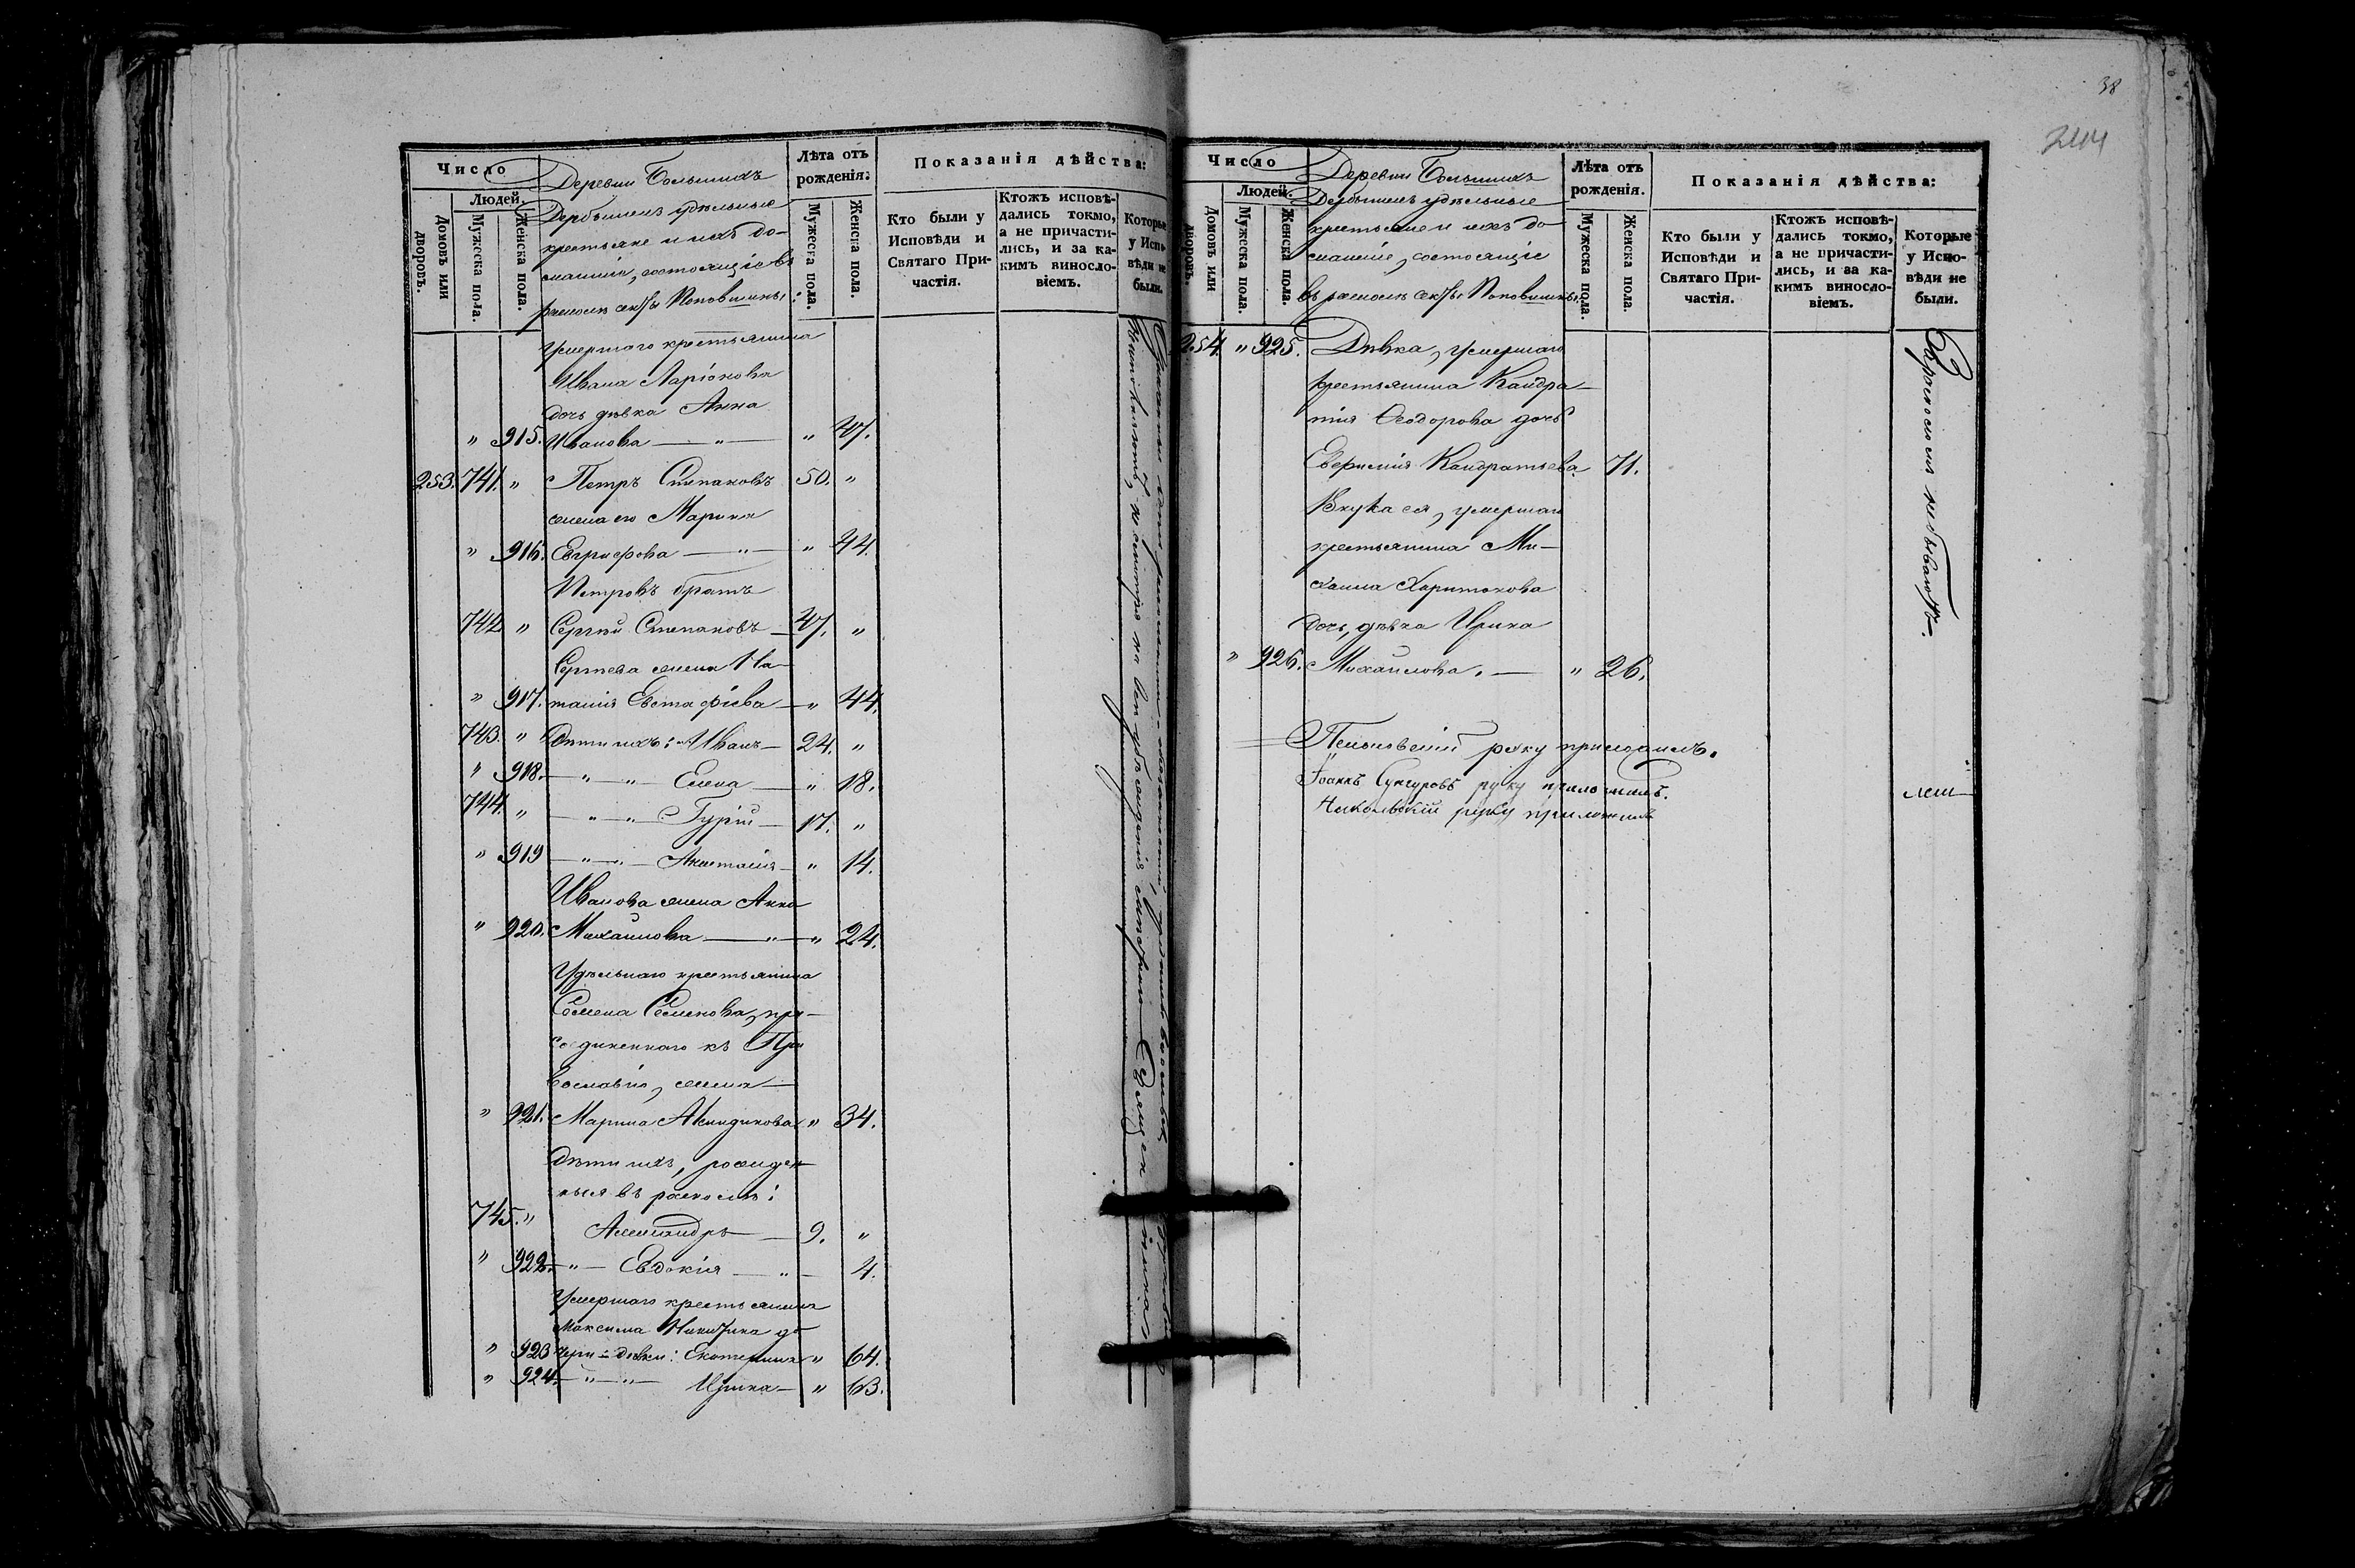 38
244
Число
Людей.
Домовъ или дворовъ.
Мужеска пола.
Женска пола.
Деревни Большихъ
Дербышевъ удѣльные
крестьяне и ихъ до-
машніе, состоящіе въ
расколѣ секты Поповщины:
Лѣта отъ рожденія:
Мужеска пола.
Женска пола.
Показанія дѣйства:
Кто были у Исповѣди и Святаго При-частія.
Ктожъ исповѣ-дались токмо, а не причасти-лись, и за ка-кимъ винсло-віемъ.
Которые у Испо-вѣди не были.
Умершаго крестьянина
Ивана Ларіонова
дочь дѣвка Анна
" 915. Иванова — " — " 47.
253. 741. " Петръ Степановъ 50. "
жена его Марина
" 916. Евграфова — " — " 44.
Петровъ братъ
742. " Сергѣй Степановъ — 47. "
Сергѣева жена На-
" 917. талія Евстафіева — " 44.
743. " Дѣти ихъ: Иванъ — 24. "
" 918. — " — " — Елена — " 18.
744. " — " — " — Гурій — 17. "
" 919 — " — " — Анастасія — " 14.
Иванова жена Анна
" 920. Михайлова — " — " 24.
Удѣльнаго крестьянина
Семена Семенова, при-
соединеннаго къ Пра
вославію, жена —
" 921. Марина Акиндинова " 34.
Дѣти ихъ, рожден
ныя въ расколѣ:
745. " Александръ — 9. "
" 922. — " — Евдокія — " — 4.
Умершаго крестьянина
Максима Никитина до
" 923 чери - дѣвки: Екатерина " 64.
" 924. — " — " — Ирина — " 63.
Число
Людей.
Домовъ или дворовъ.
Мужеска пола.
Женска пола.
Деревни Большихъ
Дербышевъ удѣльные
крестьяне и ихъ до-
машніе, состоящіе
въ расколѣ секты Поповщины:
Лѣта отъ рожденія.
Мужеска пола.
Женска пола.
Показанія дѣйства:
Кто были у Исповѣди и Святаго При-частія.
Ктожъ исповѣ-дались токмо, а не причасти-лись, и за ка-кимъ винсло-віемъ.
Которые у Испо-вѣди не были.
254. " 925. Дѣвка, умершаго
крестьянина Кандра-
тія Ѳеодорова дочь
Евфимія Кандратьева. 71.
Внука ея, умершаго
крестьянина Ми-
хаила Харитонова
дочь, дѣвка Ирина
" 926. Михайлова. — " 26.
За расколомъ не бываютъ.
руку приложилъ.
Іоаннъ Сунгуровъ руку приложилъ.
Никольскій руку приложилъ